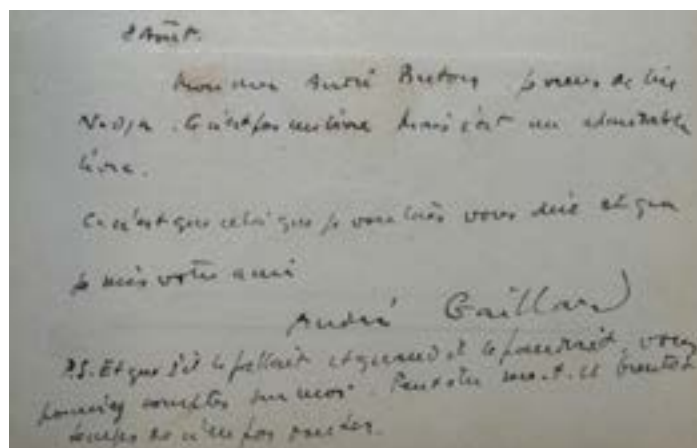 2 Août.
Mon cher André Breton je viens de lire
Nadja. Ce n'est pas un livre mais c'est un admirable
livre.
Ce n'est que cela que je voulais vous dire et que
je suis votre ami
André Gaillard
P.S. Et que s'il le fallait et quand il le faudrait vous
pouvez compter sur moi. Peut-être
temps de n'en pas douter.